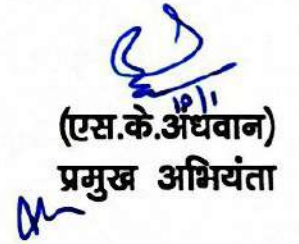 (एस.के.अंधवान)
प्रमुख अभियंता